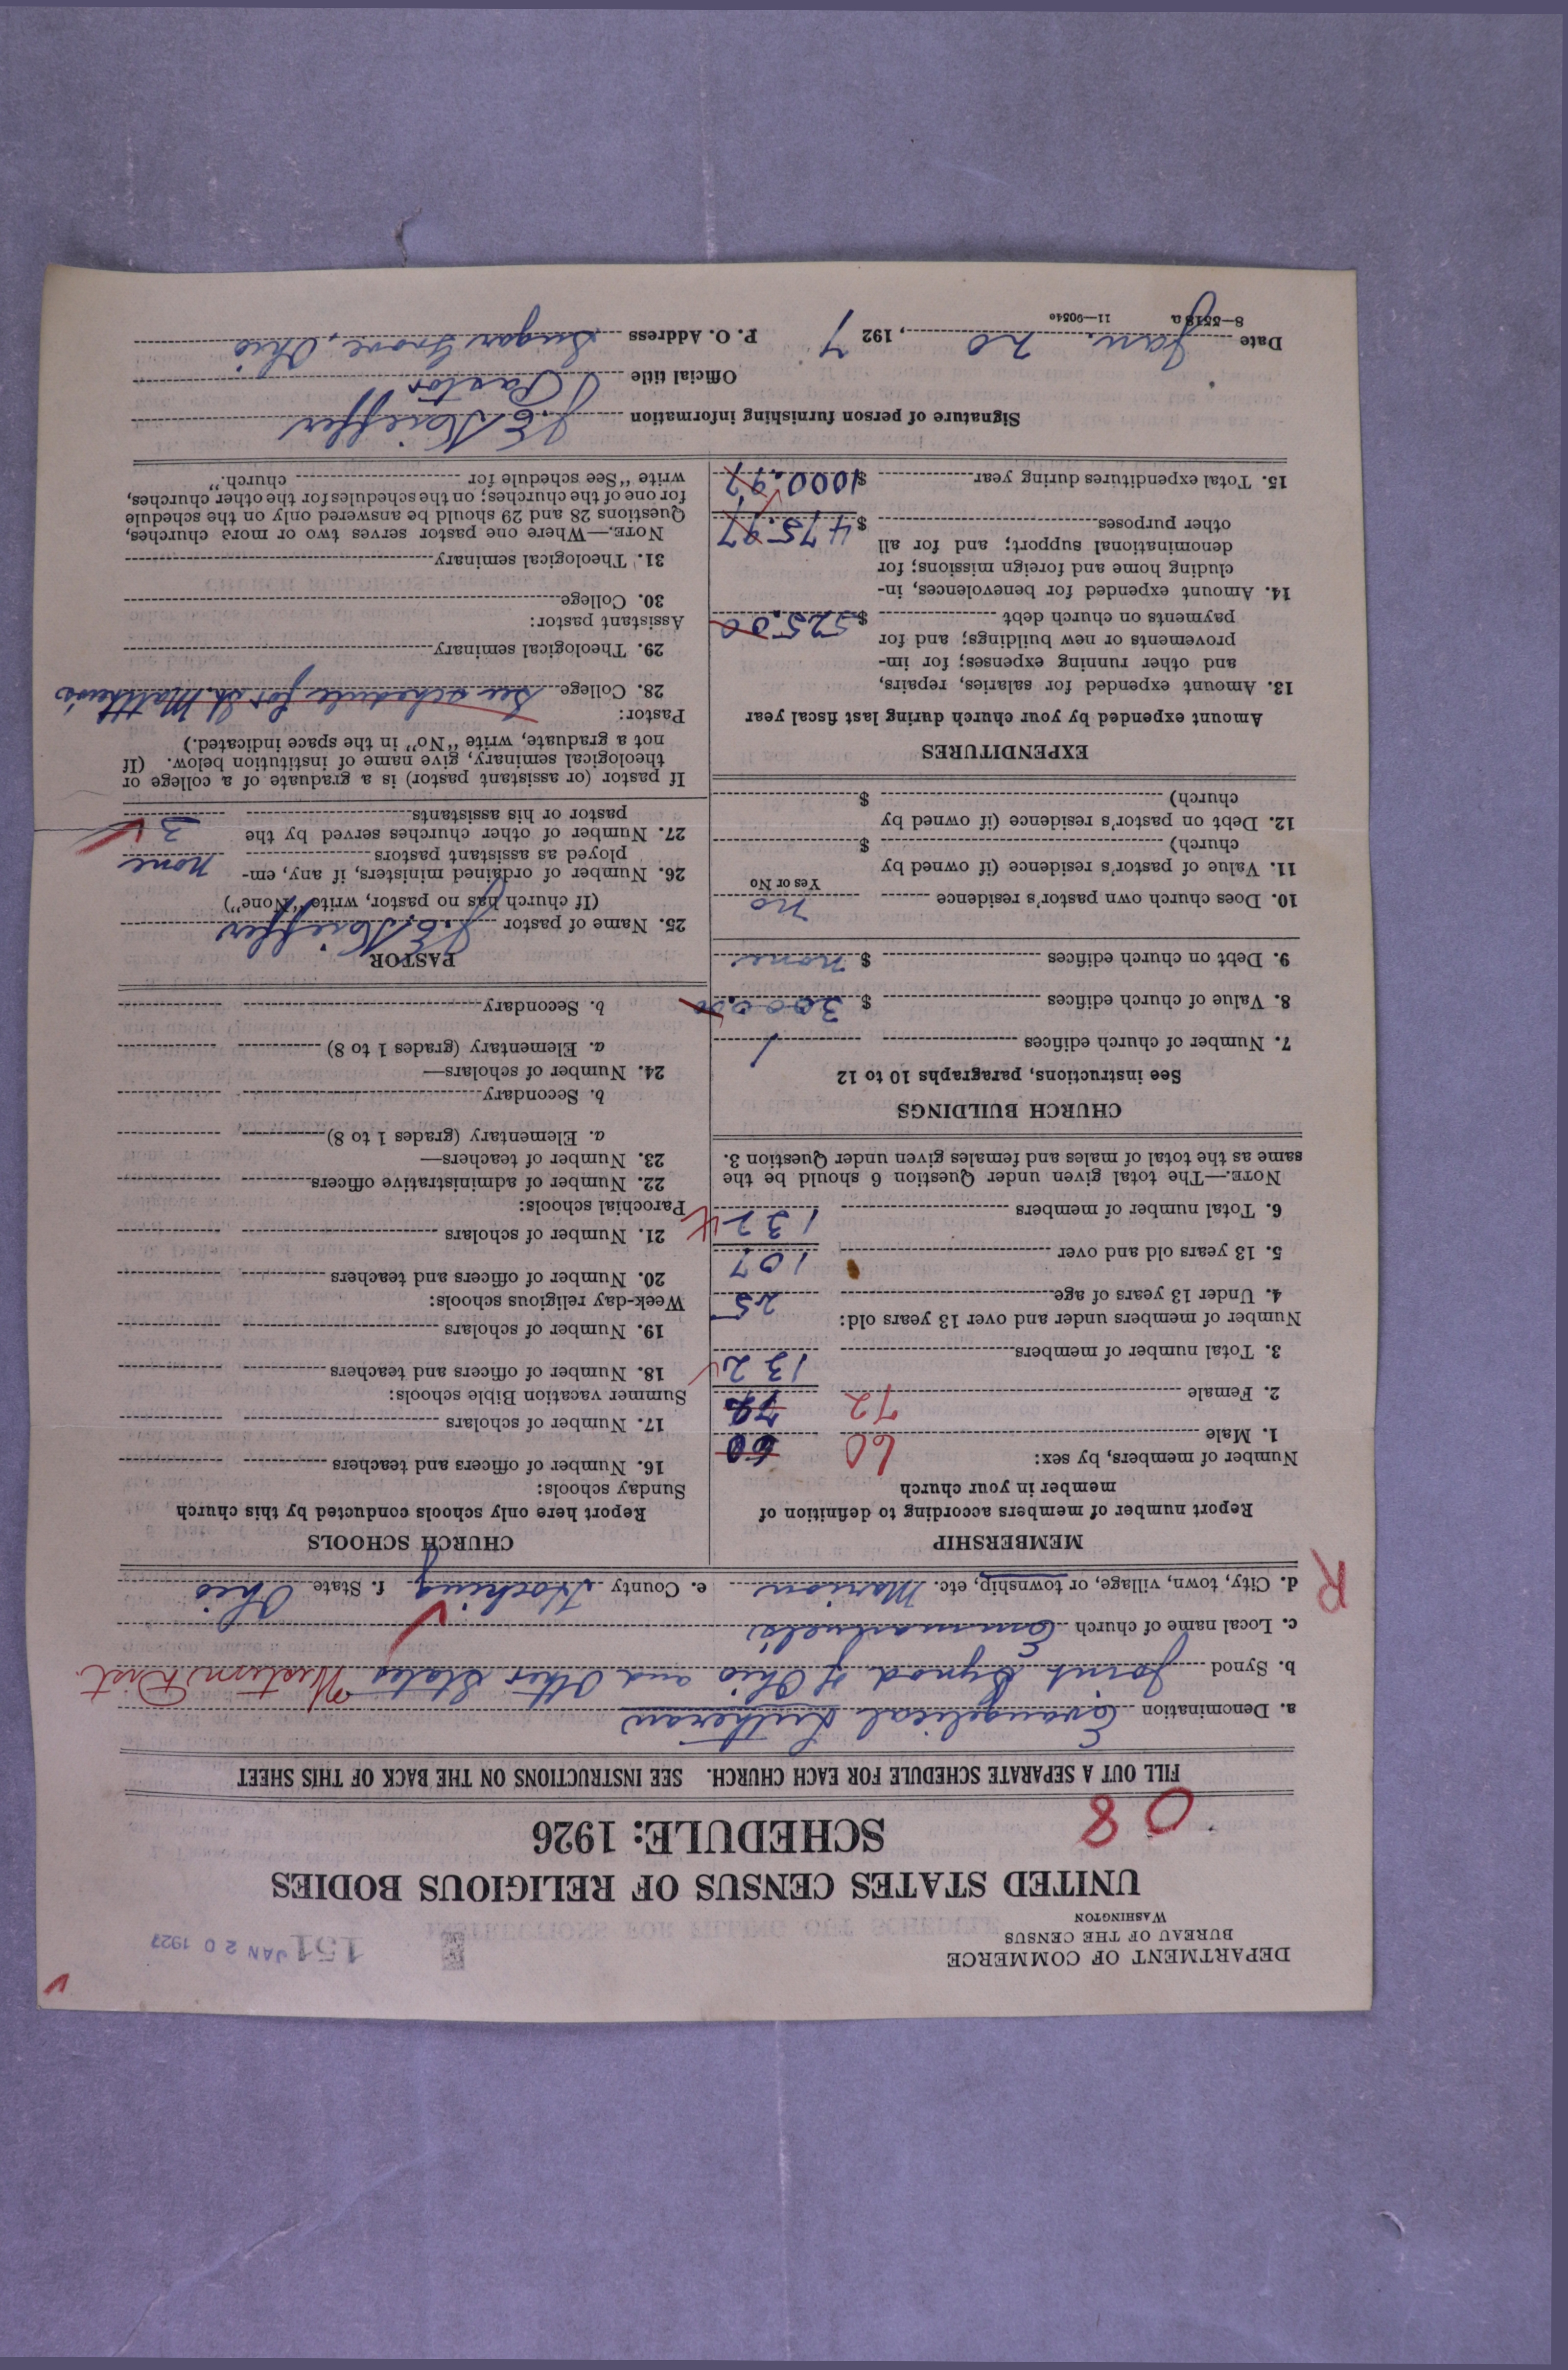 DEPARTMENT OF COMMERCE
BUREAU OF THE CENSUS
WASHINGTON
151 JAN 20 1927
UNITED STATES CENSUS OF RELIGIOUS BODIES
SCHEDULE: 1926
08
FILL OUT A SEPARATE SCHEDULE FOR EACH CHURCH. SEE INSTRUCTIONS ON THE BACK OF THIS SHEET
a. Denomination Evangelical Lutheran
b. Synod Joint Synod of Ohio and Other States Western Dist
c. Local name of church Emmanuel's
d. City, town, village, or township, etc. Marion e. County Hocking f. State Ohio
R
MEMBERSHIP
Report number of members according to definition of
member in your church
Number of members, by sex:
1. Male 60 60
2. Female 72 72
3. Total number of members 132
Number of members under and over 13 years old:
4. Under 13 years of age 25
5. 13 years old and over 107
6. Total number of members 132
NOTE.—The total given under Question 6 should be the
same as the total of males and females given under Question 3.
CHURCH BUILDINGS
See instructions, paragraphs 10 to 12
7. Number of church edifices 1
8. Value of church edifices $ 3000.00
9. Debt on church edifices $ none
10. Does church own pastor's residence no
Yes or No
11. Value of pastor's residence (if owned by
church) $
12. Debt on pastor's residence (if owned by
church) $
EXPENDITURES
Amount expended by your church during last fiscal year
13. Amount expended for salaries, repairs,
and other running expenses; for im-
provements or new buildings; and for
payments on church debt $ 525.00
14. Amount expended for benevolences, in-
cluding home and foreign missions; for
denominational support; and for all
other purposes $ 475.97
15. Total expenditures during year $ 1000.97
CHURCH SCHOOLS
Report here only schools conducted by this church
Sunday schools:
16. Number of officers and teachers
17. Number of scholars
Summer vacation Bible schools:
18. Number of officers and teachers
19. Number of scholars
Week-day religious schools:
20. Number of officers and teachers
21. Number of scholars
Parochial schools:
22. Number of administrative officers
23. Number of teachers—
a. Elementary (grades 1 to 8)
b. Secondary
24. Number of scholars—
a. Elementary (grades 1 to 8)
b. Secondary
PASTOR
25. Name of pastor J. E. Kieffer
(If church has no pastor, write "None")
26. Number of ordained ministers, if any, em-
ployed as assistant pastors none
27. Number of other churches served by the
pastor or his assistants 3
If pastor (or assistant pastor) is a graduate of a college or
theological seminary, give name of institution below. (If
not a graduate, write "No" in the space indicated.)
Pastor:
28. College See schedule for St. Matthew's
29. Theological seminary
Assistant pastor:
30. College
31. Theological seminary
NOTE.—Where one pastor serves two or more churches,
Questions 28 and 29 should be answered only on the schedule
for one of the churches; on the schedules for the other churches,
write "See schedule for church."
Signature of person furnishing information J. E. Kieffer
Official title Pastor
Date Jan. 20, 1927 P. O. Address Sugar Grove, Ohio
8—5518a 11—9054c